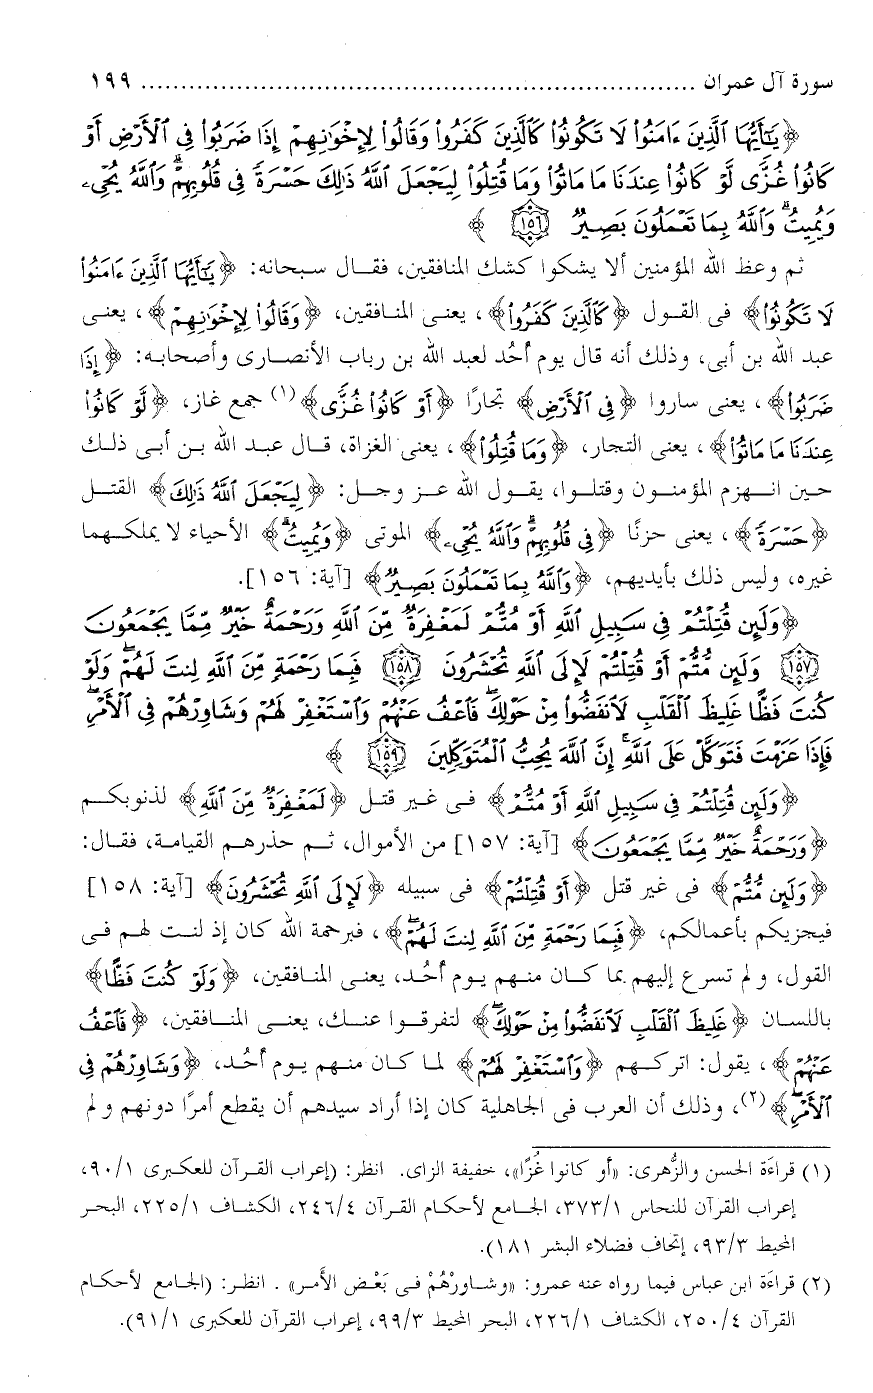 سورة آل عمران ........................................................................ ١٩٩
﴿يَـٰٓأَيُّهَا ٱلَّذِينَ ءَامَنُوا۟ لَا تَكُونُوا۟ كَٱلَّذِينَ كَفَرُوا۟ وَقَالُوا۟ لِإِخْوَٰنِهِمْ إِذَا ضَرَبُوا۟ فِى ٱلْأَرْضِ أَوْ
كَانُوا۟ غُزًّى لَّوْ كَانُوا۟ عِندَنَا مَا مَاتُوا۟ وَمَا قُتِلُوا۟ لِيَجْعَلَ ٱللَّهُ ذَٰلِكَ حَسْرَةً فِى قُلُوبِهِمْ ۗ وَٱللَّهُ يُحْىِۦ
وَيُمِيتُ ۗ وَٱللَّهُ بِمَا تَعْمَلُونَ بَصِيرٌ ١٥٦ ﴾
ثم وعظ الله المؤمنين ألا يشكوا كشك المنافقين، فقال سبحانه: ﴿يَـٰٓأَيُّهَا ٱلَّذِينَ ءَامَنُوا۟
لَا تَكُونُوا۟﴾ فى القول ﴿كَٱلَّذِينَ كَفَرُوا۟﴾، يعنى المنافقين، ﴿وَقَالُوا۟ لِإِخْوَٰنِهِمْ﴾، يعنى
عبد الله بن أبى، وذلك أنه قال يوم أُحُد لعبد الله بن رباب الأنصارى وأصحابه: ﴿إِذَا
ضَرَبُوا۟﴾، يعنى ساروا ﴿فِى ٱلْأَرْضِ﴾ تجارًا ﴿أَوْ كَانُوا۟ غُزًّى﴾(١) جمع غاز، ﴿لَّوْ كَانُوا۟
عِندَنَا مَا مَاتُوا۟﴾، يعنى التجار، ﴿وَمَا قُتِلُوا۟﴾، يعنى الغزاة، قال عبد الله بن أبى ذلك
حين انهزم المؤمنون وقتلوا، يقول الله عز وجل: ﴿لِيَجْعَلَ ٱللَّهُ ذَٰلِكَ﴾ القتل
﴿حَسْرَةً﴾، يعنى حزنًا ﴿فِى قُلُوبِهِمْ ۗ وَٱللَّهُ يُحْىِۦ﴾ الموتى ﴿وَيُمِيتُ ۗ﴾ الأحياء لا يملكهما
غيره، وليس ذلك بأيديهم، ﴿وَٱللَّهُ بِمَا تَعْمَلُونَ بَصِيرٌ﴾ [آية: ١٥٦].
﴿وَلَئِن قُتِلْتُمْ فِى سَبِيلِ ٱللَّهِ أَوْ مُتُّمْ لَمَغْفِرَةٌ مِّنَ ٱللَّهِ وَرَحْمَةٌ خَيْرٌ مِّمَّا يَجْمَعُونَ
١٥٧ وَلَئِن مُّتُّمْ أَوْ قُتِلْتُمْ لَإِلَى ٱللَّهِ تُحْشَرُونَ ١٥٨ فَبِمَا رَحْمَةٍ مِّنَ ٱللَّهِ لِنتَ لَهُمْ ۖ وَلَوْ
كُنتَ فَظًّا غَلِيظَ ٱلْقَلْبِ لَٱنفَضُّوا۟ مِنْ حَوْلِكَ ۖ فَٱعْفُ عَنْهُمْ وَٱسْتَغْفِرْ لَهُمْ وَشَاوِرْهُمْ فِى ٱلْأَمْرِ ۖ
فَإِذَا عَزَمْتَ فَتَوَكَّلْ عَلَى ٱللَّهِ ۚ إِنَّ ٱللَّهَ يُحِبُّ ٱلْمُتَوَكِّلِينَ ١٥٩ ﴾
﴿وَلَئِن قُتِلْتُمْ فِى سَبِيلِ ٱللَّهِ أَوْ مُتُّمْ﴾ فى غير قتل ﴿لَمَغْفِرَةٌ مِّنَ ٱللَّهِ﴾ لذنوبكم
﴿وَرَحْمَةٌ خَيْرٌ مِّمَّا يَجْمَعُونَ﴾ [آية: ١٥٧] من الأموال، ثم حذرهم القيامة، فقال:
﴿وَلَئِن مُّتُّمْ﴾ فى غير قتل ﴿أَوْ قُتِلْتُمْ﴾ فى سبيله ﴿لَإِلَى ٱللَّهِ تُحْشَرُونَ﴾ [آية: ١٥٨]
فيجزيكم بأعمالكم، ﴿فَبِمَا رَحْمَةٍ مِّنَ ٱللَّهِ لِنتَ لَهُمْ ۖ﴾، فبرحمة الله كان إذ لنت لهم فى
القول، ولم تسرع إليهم بما كان منهم يوم أُحُد، يعنى المنافقين، ﴿وَلَوْ كُنتَ فَظًّا﴾
باللسان ﴿غَلِيظَ ٱلْقَلْبِ لَٱنفَضُّوا۟ مِنْ حَوْلِكَ ۖ﴾ لتفرقوا عنك، يعنى المنافقين، ﴿فَٱعْفُ
عَنْهُمْ﴾، يقول: اتركهم ﴿وَٱسْتَغْفِرْ لَهُمْ﴾ لما كان منهم يوم أُحُد، ﴿وَشَاوِرْهُمْ فِى
ٱلْأَمْرِ ۖ﴾(٢)، وذلك أن العرب فى الجاهلية كان إذا أراد سيدهم أن يقطع أمرًا دونهم ولم
(١) قراءَة الحسن والزُّهرى: «أو كانوا غُزًا»، خفيفة الزاى. انظر: (إعراب القرآن للعكبرى ٩٠/١،
إعراب القرآن للنحاس ٣٧٣/١، الجامع لأحكام القرآن ٢٤٦/٤، الكشاف ٢٢٥/١، البحر
المحيط ٩٣/٣، إتحاف فضلاء البشر ١٨١).
(٢) قراءَة ابن عباس فيما رواه عنه عمرو: «وشاورْهُمْ فى بَعْض الأَمر». انظر: (الجامع لأحكام
القرآن ٢٥٠/٤، الكشاف ٢٢٦/١، البحر المحيط ٩٩/٣، إعراب القرآن للعكبرى ٩١/١).